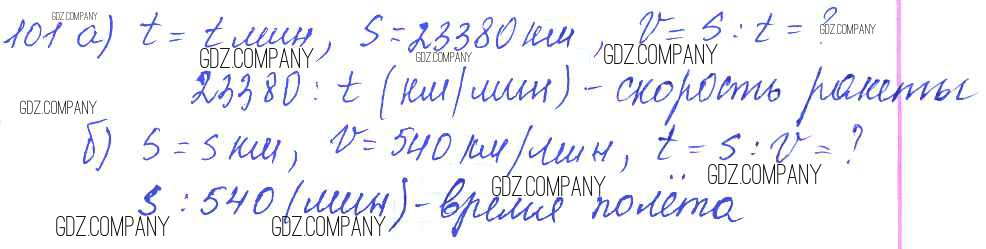 GDZ.COMPANY GDZ.COMPANY GDZ.COMPANY
101 а) t = t мин, S = 23380 км, V = S : t = ?
GDZ.COMPANY GDZ.COMPANY GDZ.COMPANY
23380 : t (км/мин) - скорость ракеты
GDZ.COMPANY
б) S = S км, V = 540 км/мин, t = S : V = ?
GDZ.COMPANY GDZ.COMPANY
S : 540 (мин) - время полёта
GDZ.COMPANY GDZ.COMPANY